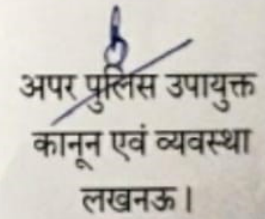 अपर पुलिस उपायुक्त
कानून एवं व्यवस्था
लखनऊ।